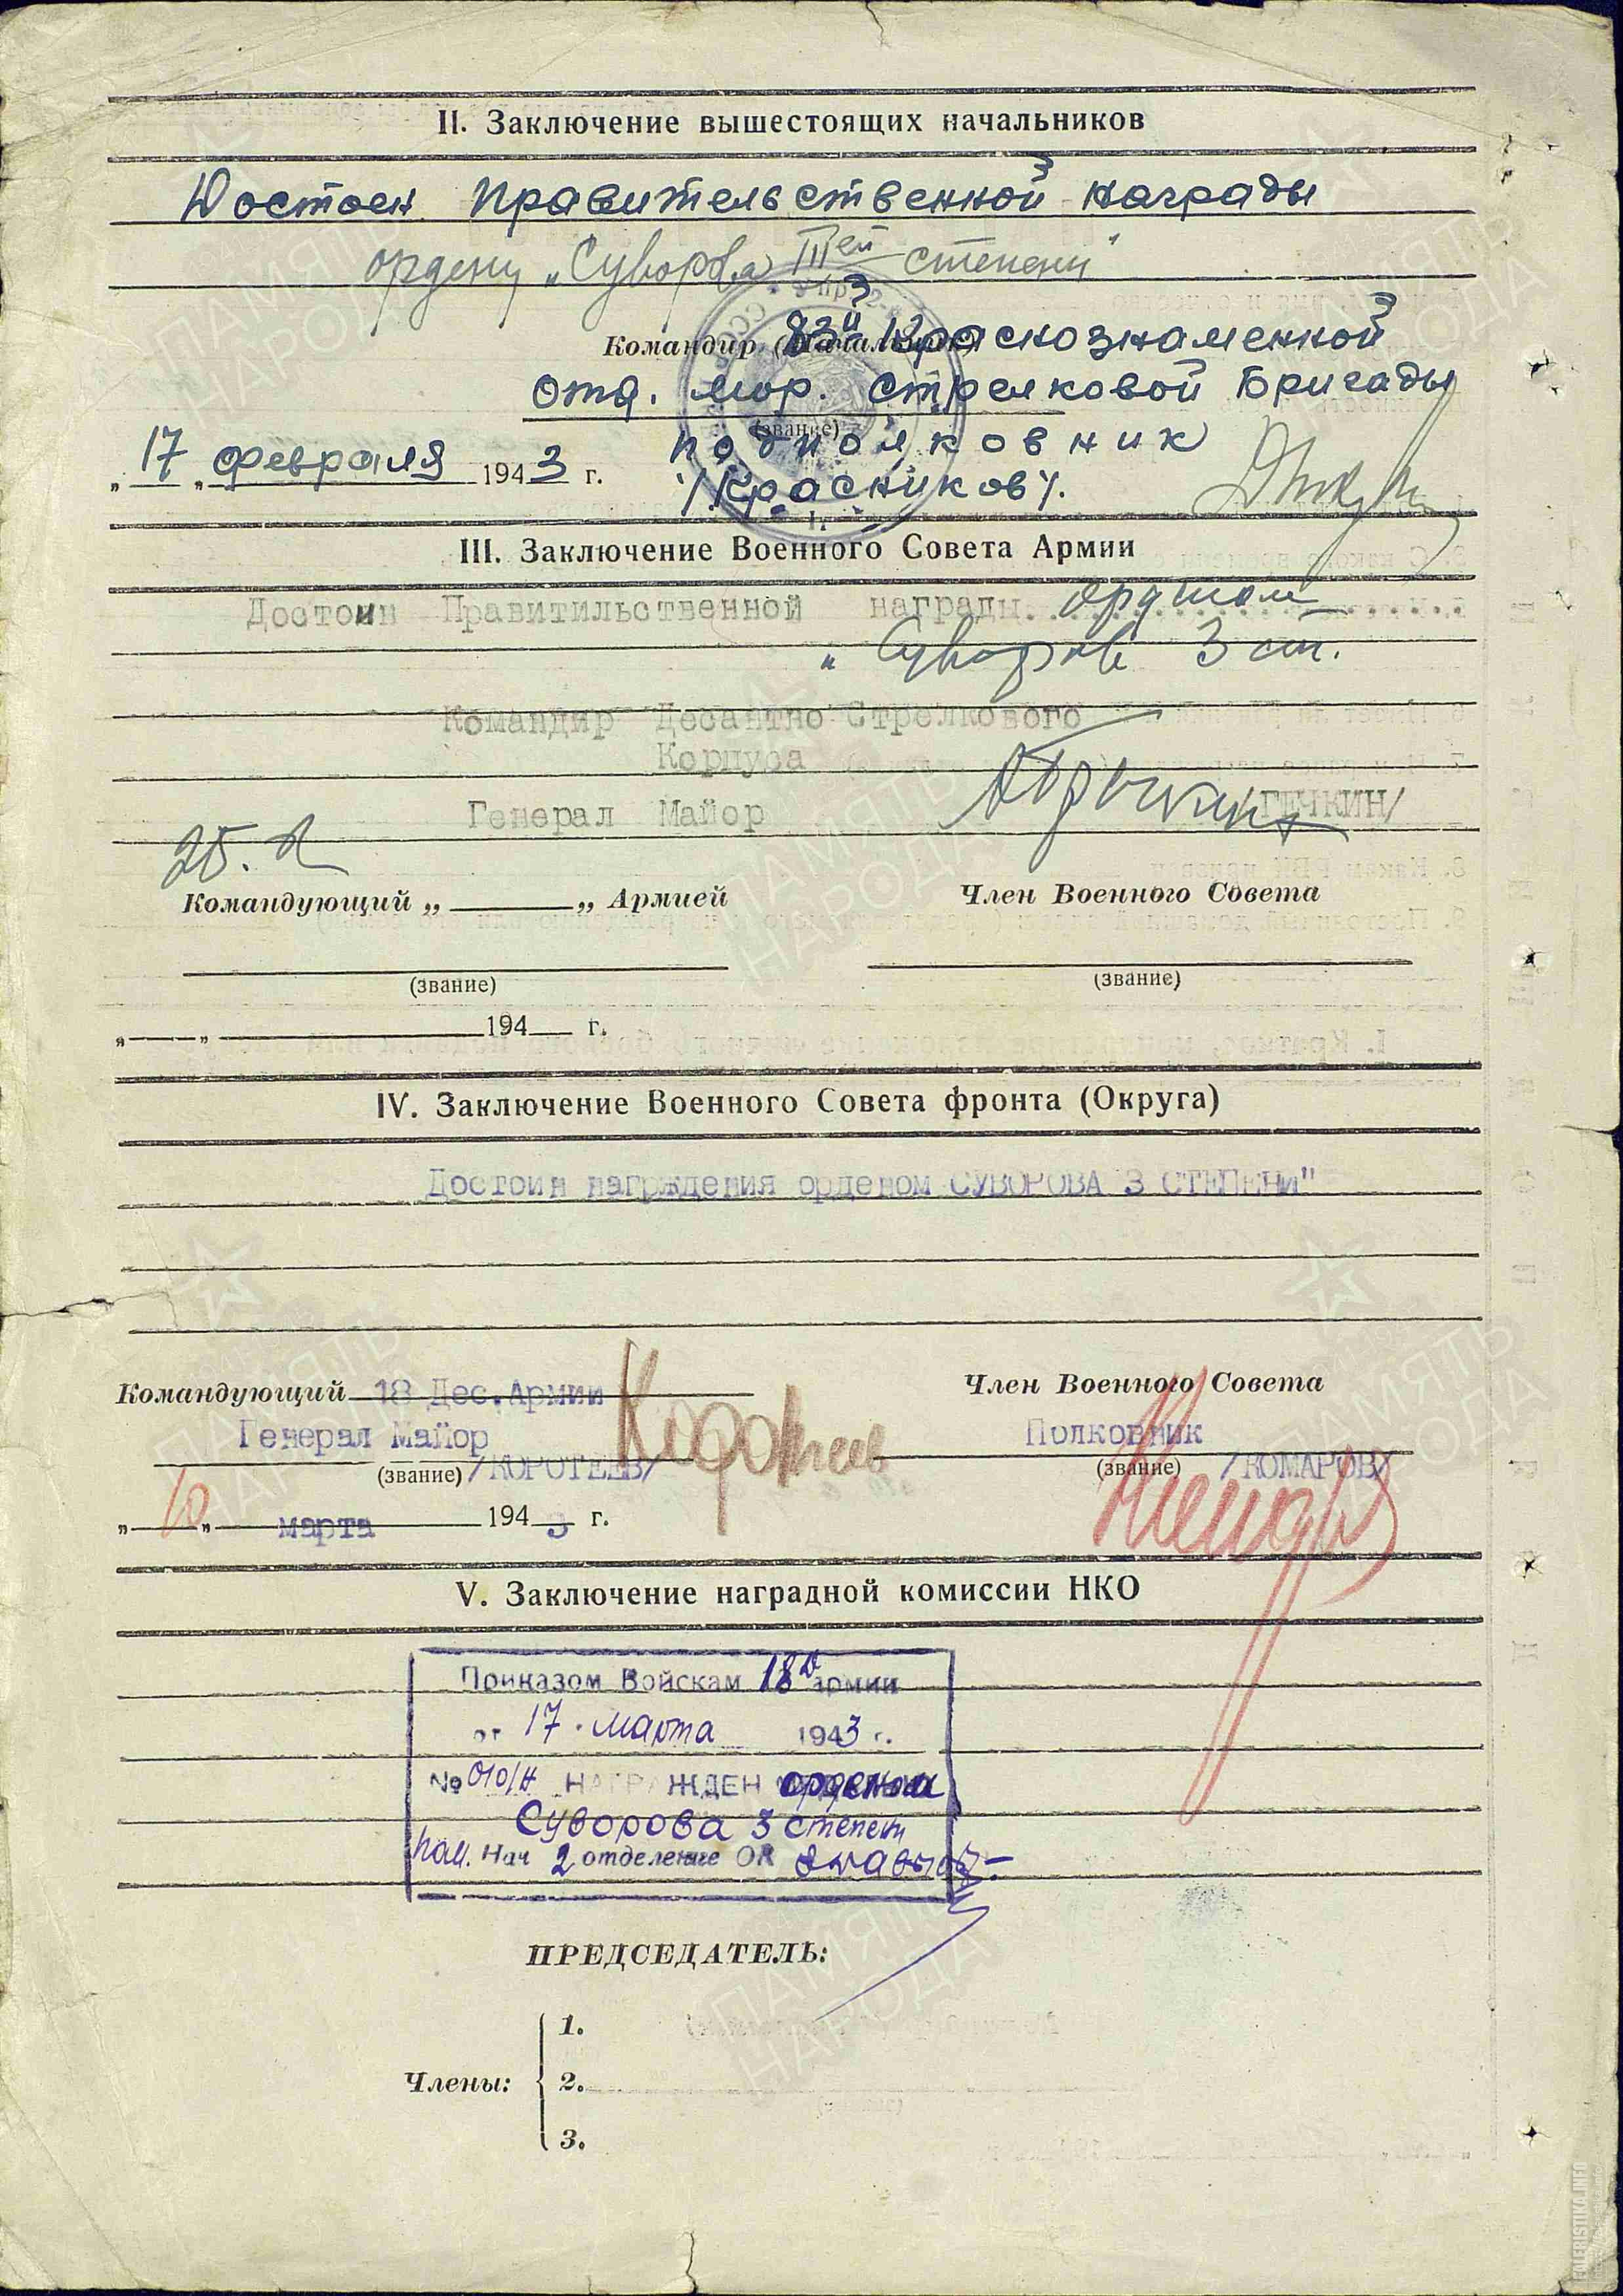 II. Заключение вышестоящих начальников
Достоен правительственной награды
ордену „Суворова IIIей степени"
Командир (Начальник) 83й Краснознаменной
отд. мор. стрелковой бригады
(звание)
„ 17 „ февраля 1943 г. подполковник
/Красников/.
III. Заключение Военного Совета Армии
Достоин Правитильственной награды. орденом
„Суворова 3 ст.
Командир Десантно Стрелкового
Корпуса
Генерал Майор /ГРЕЧКИН/
25.2
Командующий „ „ Армией Член Военного Совета
(звание) (звание)
„ „ 194 г.
IV. Заключение Военного Совета фронта (Округа)
Достоин нагрждения орденом СУВОРОВА 3 СТЕПЕНИ"
Командующий 18 Дес.Армии Член Военного Совета
Генерал Майор Полковник
(звание) /КОРОТЕЕВ/ Коротеев (звание) /КОМАРОВ/
„ 10 „ марта 1943 г.
V. Заключение наградной комиссии НКО
Приказом Войскам 18 армии
от 17 . марта 1943 г.
№ 010/н НАГРАЖДЕН орденом
Суворова 3 степени
пом. Нач 2 отделение ОК
ПРЕДСЕДАТЕЛЬ:
1.
Члены: 2.
3.
ПАМЯТЬ НАРОДА
FALERISTIKA.INFO